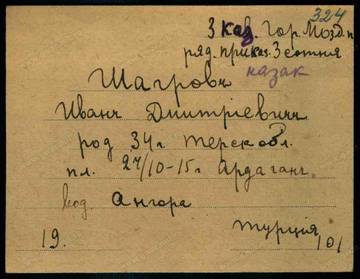 324
3 Каз. Гор. Мозд. п
ряд. приказ. 3 сотня
казак
Шагровъ
Иванъ Дмитріевичъ
род 34 г Терск обл.
пл. 27/10-15 г Ардаган.
вод Ангора
Турція
19.
101